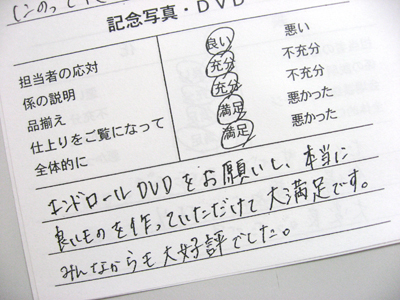 記念写真・DVD
担当者の応対 良い 悪い
係の説明 充分 不充分
品揃え 充分 不充分
仕上りをご覧になって 満足 悪かった
全体的に 満足 悪かった
エンドロールDVDをお願いし、本当に
良いものを作っていただけて大満足です。
みんなからも大好評でした。